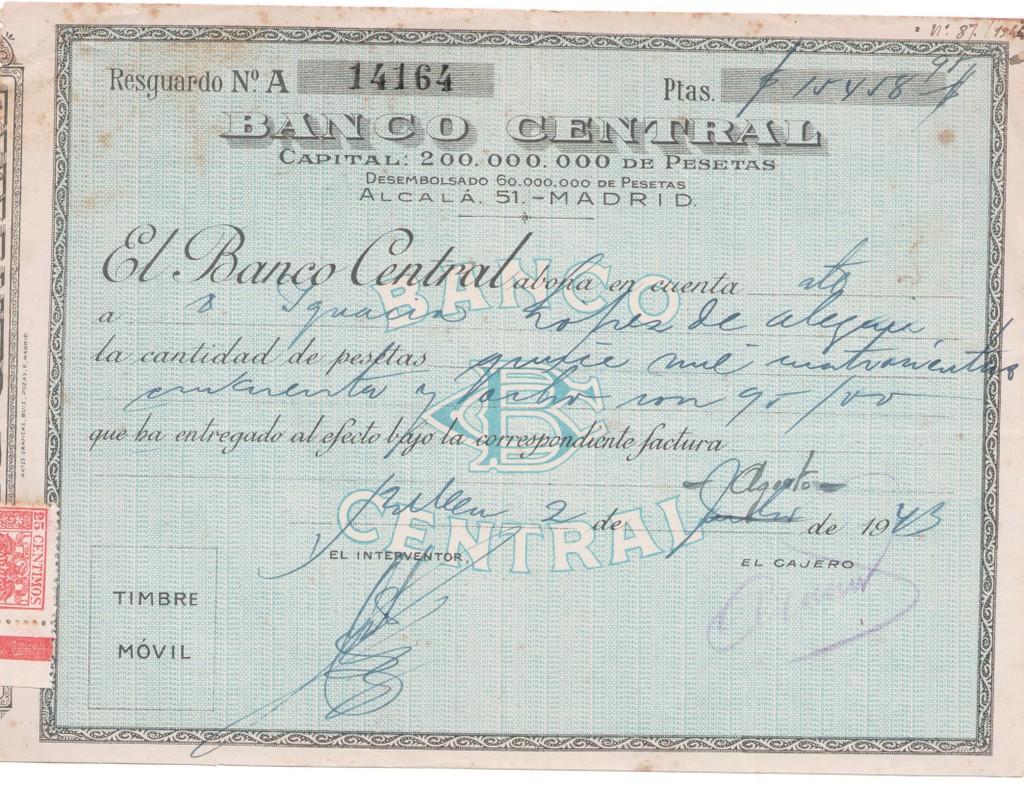 Nº 87 /
Resguardo N.º A 14164
Ptas. 15458 90
BANCO CENTRAL
CAPITAL: 200.000.000 DE PESETAS
DESEMBOLSADO 60.000.000 DE PESETAS
ALCALÁ, 51.-MADRID.
El Banco Central abona en cuenta cte
a D Ignacio Lopez de
la cantidad de pesetas quince mil cuatrocientos
cincuenta y ocho con 90/00
que ha entregado al efecto bajo la correspondiente factura
BANCO
CENTRAL
Agosto
2 de de 1943
EL INTERVENTOR,
EL CAJERO
TIMBRE
MÓVIL
25 CENTIMOS